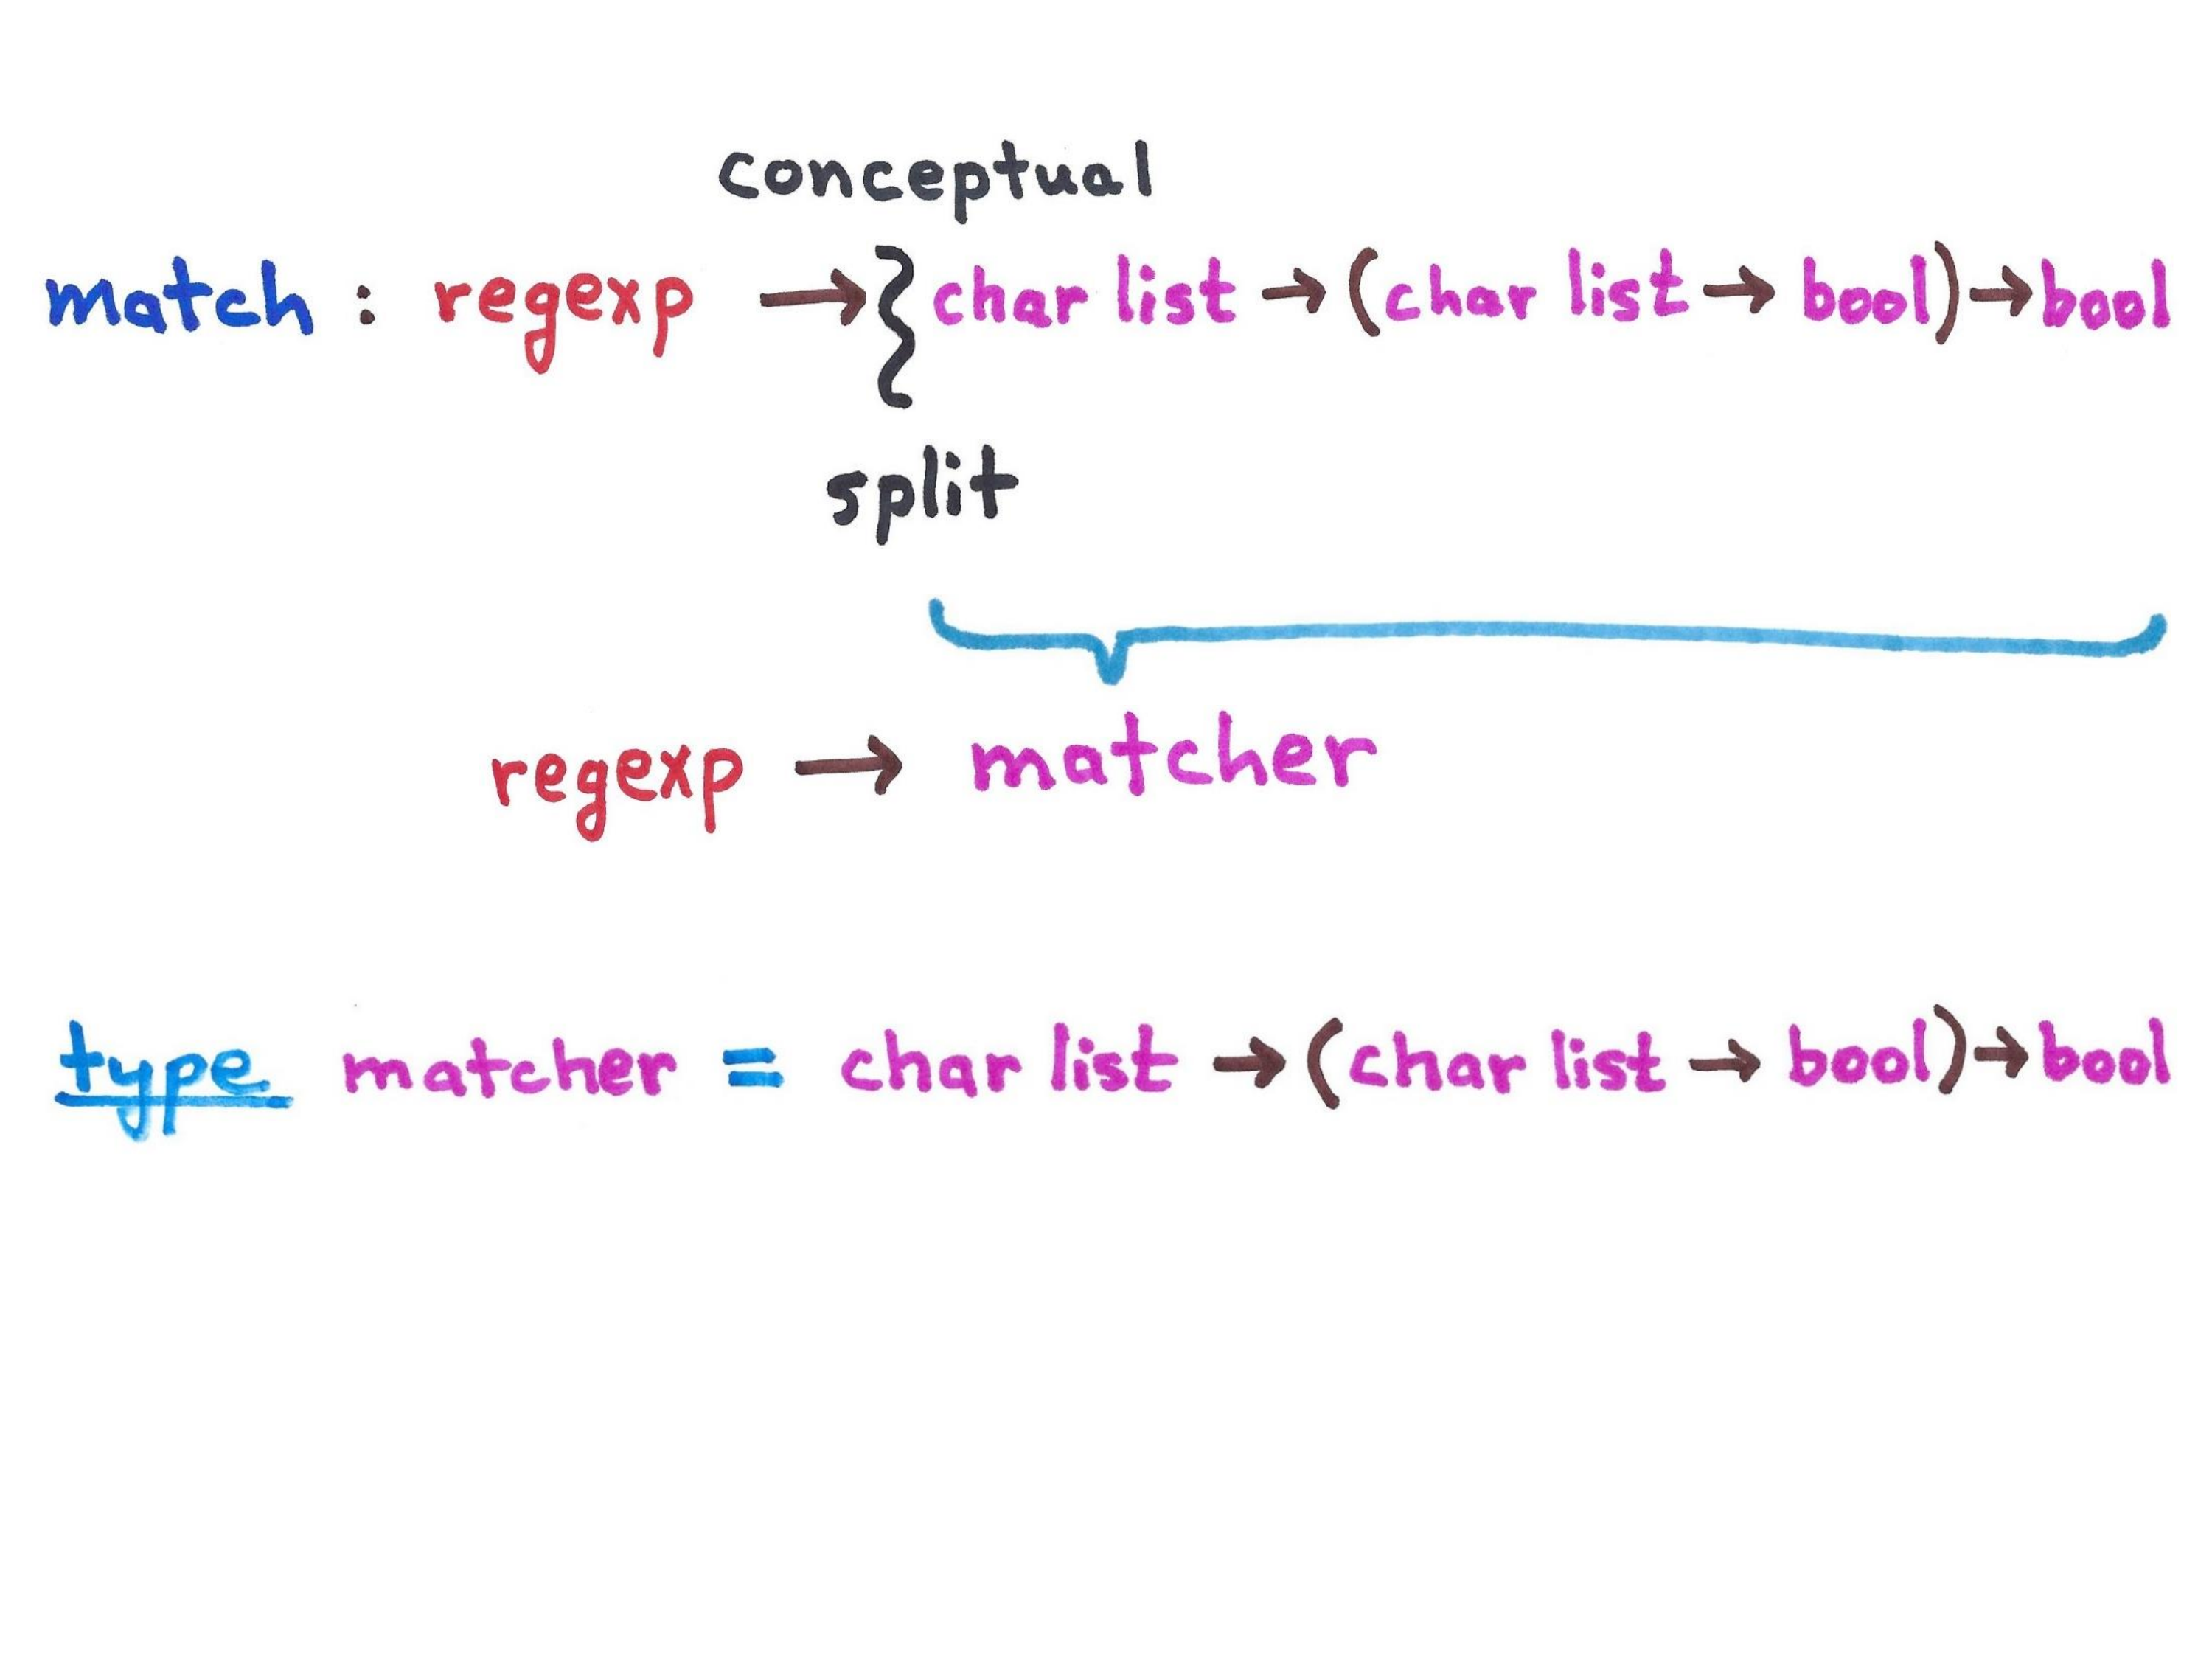 conceptual
match : regexp → { char list → (char list → bool) → bool
split
regexp → matcher
type matcher = char list → (char list → bool) → bool